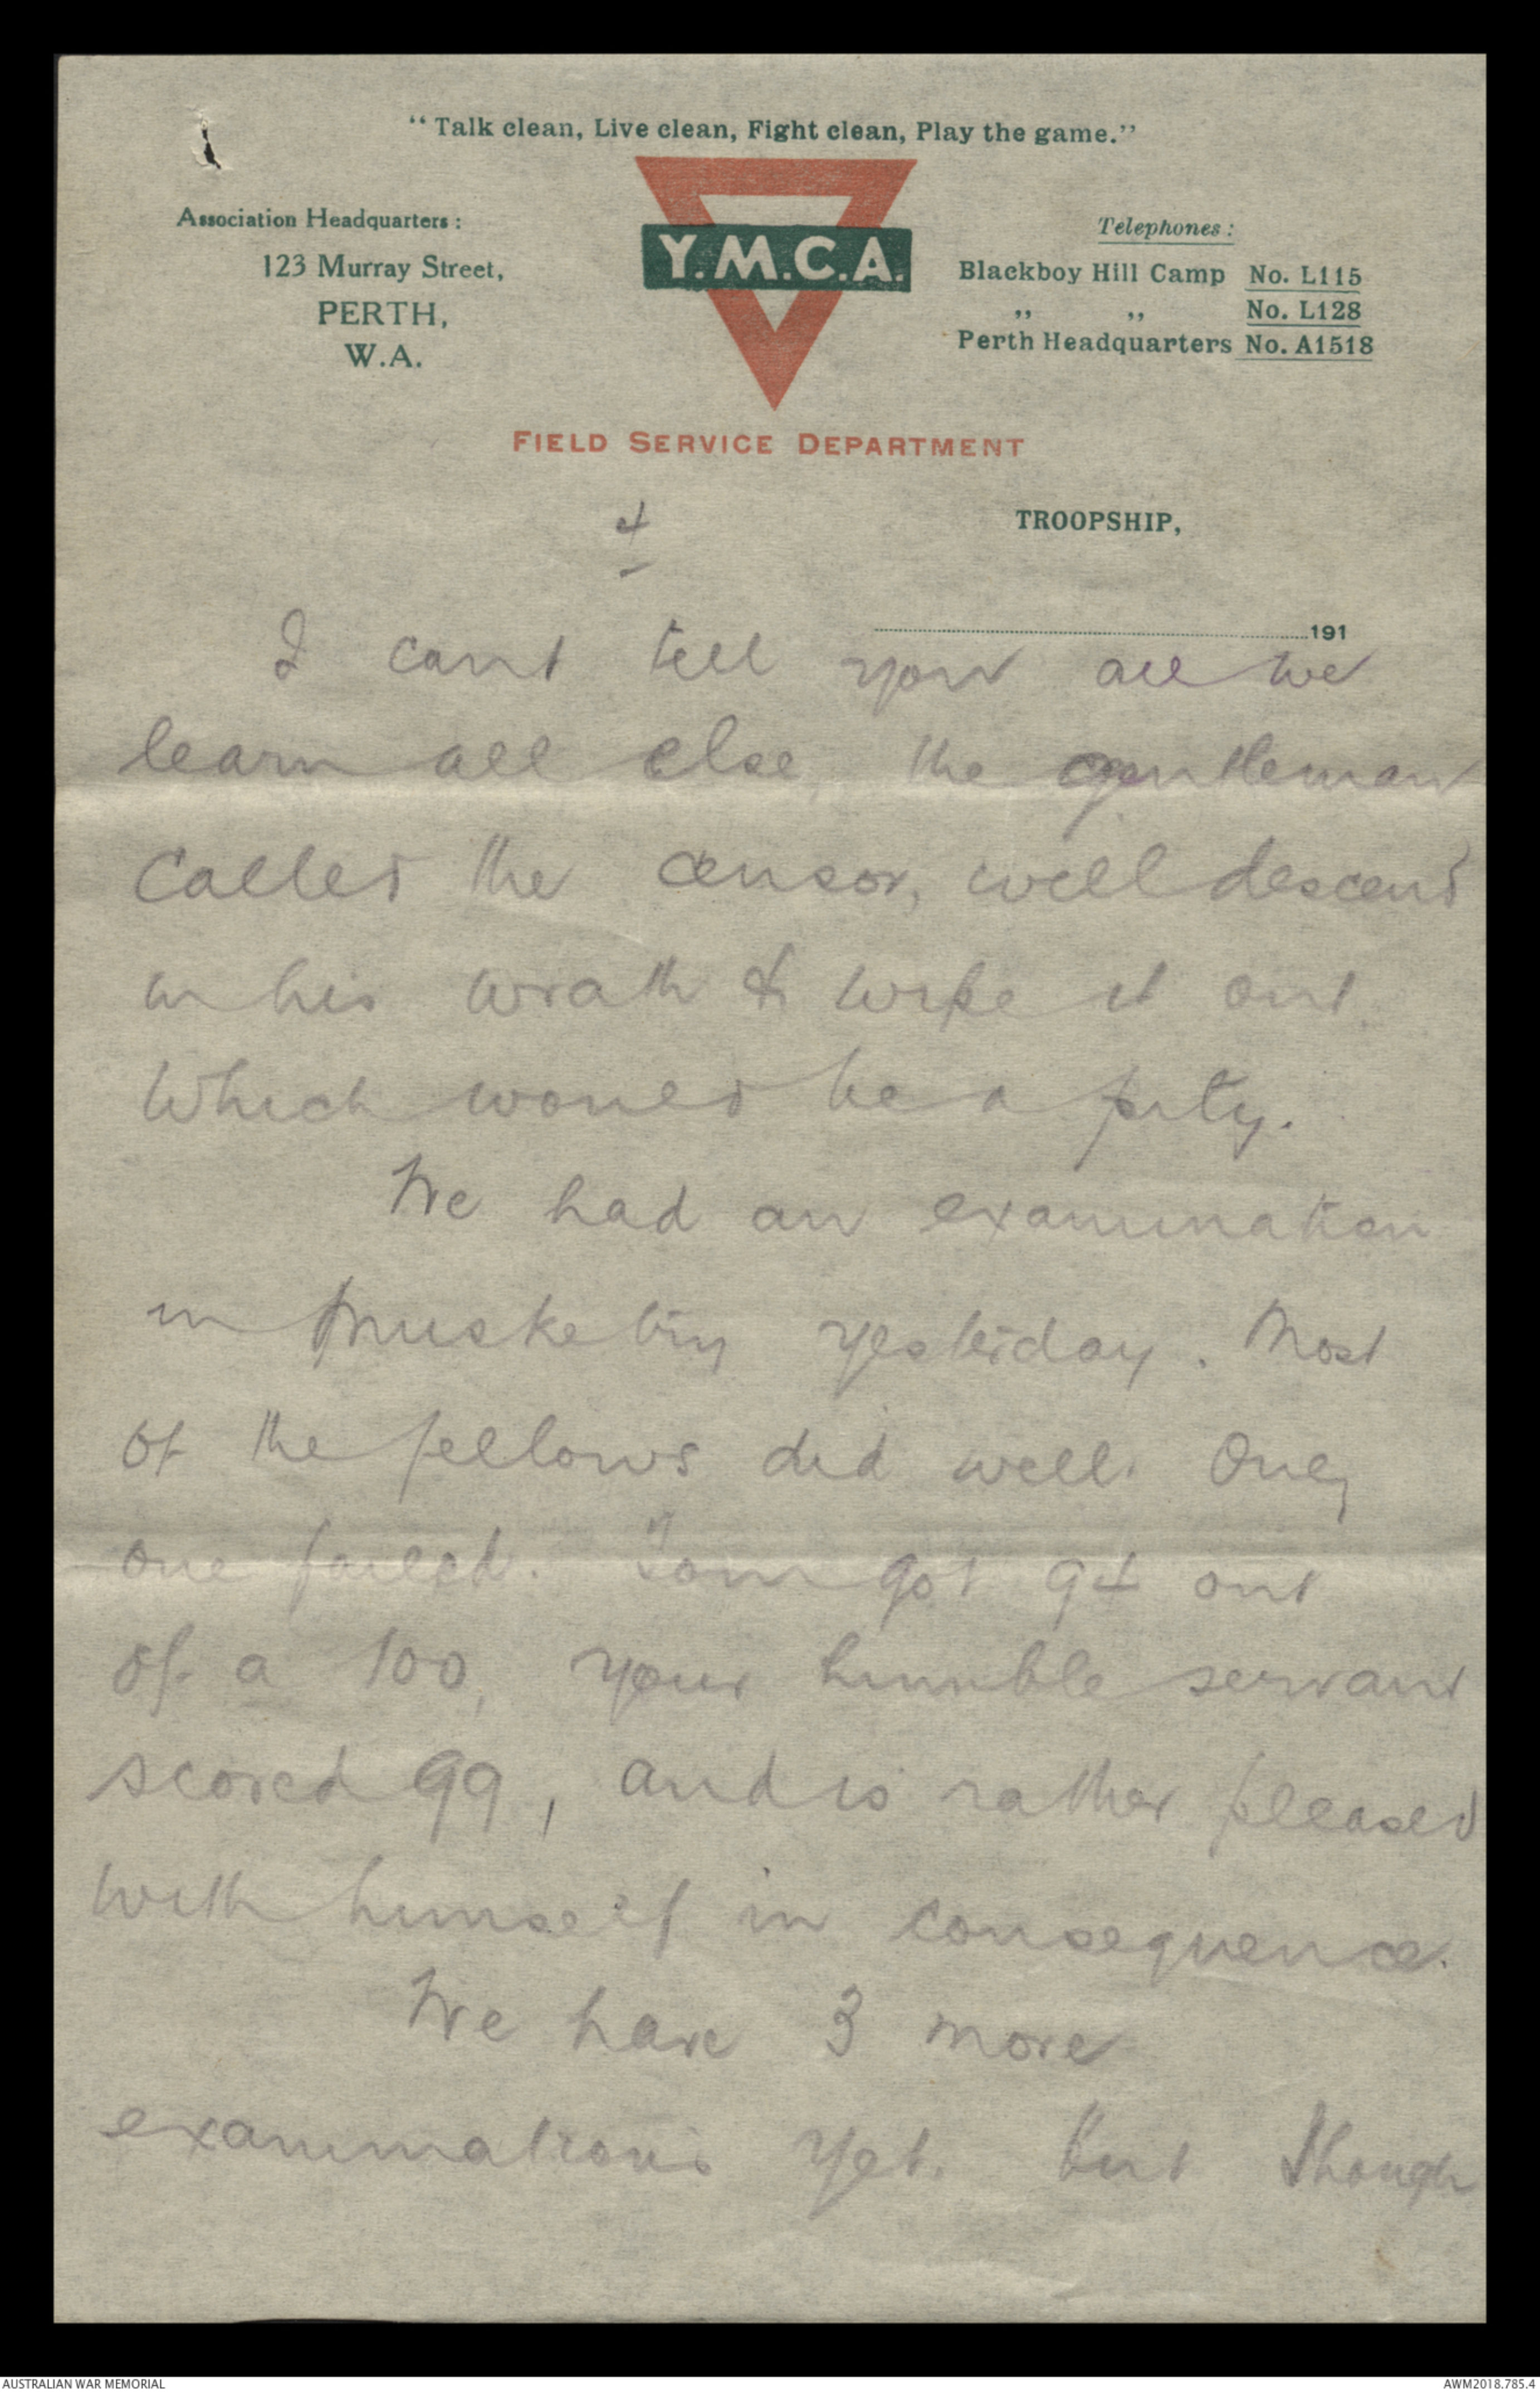 "Talk clean, Live clean, Fight clean, Play the game."
Association Headquarters:
123 Murray Street,
PERTH,
W.A.
Y.M.C.A.
Telephones:
Blackboy Hill Camp No. L115
,, ,, No. L128
Perth Headquarters No. A1518
FIELD SERVICE DEPARTMENT
4
TROOPSHIP,
191
I cant tell you all we
learn all else, the gentleman
called the censor, will descend
in his wrath & wipe it out.
Which would be a pity.
We had an examination
in Musketry yesterday. Most
of the fellows did well. Only
one failed. Tom got 94 out
of a 100, your humble servant
scored 99, and is rather pleased
with himself in consequence.
We have 3 more
examinations yet. But though
AUSTRALIAN WAR MEMORIAL
AWM2018.785.4